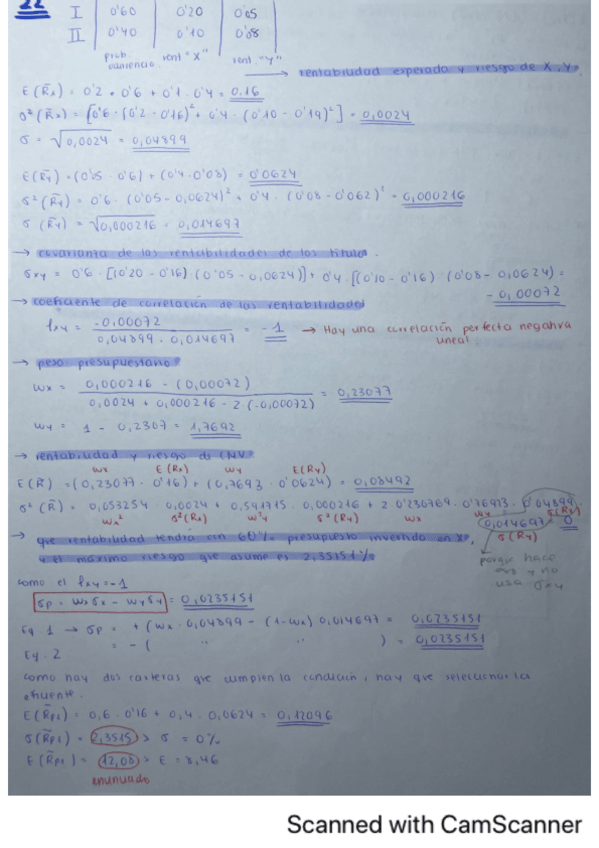 22
I 0'60 0'20 0'05
II 0'40 0'10 0'08
prob. ocurrencia rent "X" rent "Y"
→ rentabilidad esperada y riesgo de X, Y.
E(R̃x) = 0'2 · 0'6 + 0'1 · 0'4 = 0.16
σ²(R̃x) = [0'6 · (0'2 - 0'16)² + 0'4 · (0'10 - 0'19)²] = 0,0024
σ = √0,0024 = 0,04899
E(R̃y) = (0'05 · 0'6) + (0'4 · 0'08) = 0'0624
σ²(R̃y) = 0'6 · (0'05 - 0,0624)² + 0'4 · (0'08 - 0'062)² = 0,000216
σ(R̃y) = √0,000216 = 0,014697
→ covarianza de las rentabilidades de los títulos.
σxy = 0'6 · [(0'20 - 0'16) · (0'05 - 0,0624)] + 0'4 · [(0'10 - 0'16) · (0'08 - 0,0624) =
- 0,00072
→ coeficiente de correlación de las rentabilidades
ρxy = -0,00072 / 0,04899 · 0,014697 = -1 → Hay una correlación perfecta negativa
lineal.
→ peso presupuestario
wx = 0,000216 - (0,00072) / 0,0024 + 0,000216 - 2 (-0,00072) = 0,23077
wy = 1 - 0,2307 = 1,7692
→ rentabilidad y riesgo de CMV
wx E(Rx) wy E(Ry)
E(R̃) = (0,23077 · 0'16) + (0,7693 · 0'0624) = 0,08492
σ²(R̃) = 0,053254 · 0,0024 + 0,591715 · 0,000216 + 2 · 0'230769 · 0'76923 · 0'04899 ·
wx² σ²(Rx) w²y σ²(Ry) wx wy σ(Rx)
0,014697 = 0
σ(Ry)
→ que rentabilidad tendría con 60% presupuesto invertido en X,
y el máximo riesgo que asume es 2,35151%
porque hace
y no
usa σxy
como el ρxy = -1
σp = wxσx - wyσy = 0,0235151
Eq. 1 → σp = + (wx · 0,04899 - (1-wx) 0,014697 = 0,0235151
Eq. 2 = - ( " " ) = 0,0235151
como hay dos carteras que cumplen la condición, hay que seleccionar la
eficiente.
E(R̃p1) = 0,6 · 0'16 + 0,4 · 0,0624 = 0,12096
σ(R̃p1) = 2,3515 > σ = 0%
E(R̃p1) = 12,08 > E = 8,46
enunciado
Scanned with CamScanner